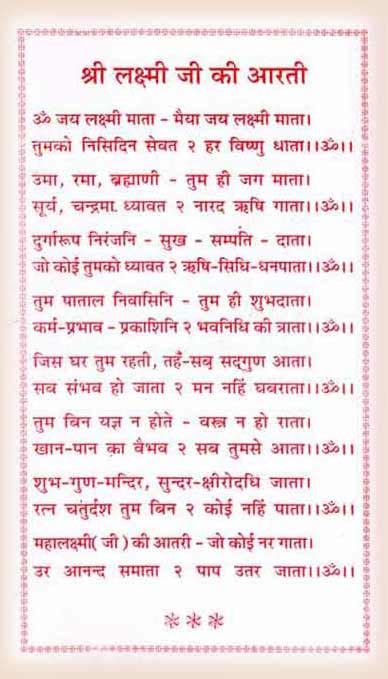 श्री लक्ष्मी जी की आरती
ॐ जय लक्ष्मी माता - मैया जय लक्ष्मी माता।
तुमको निसिदिन सेवत २ हर विष्णु धाता।।ॐ।।
उमा, रमा, ब्रह्माणी - तुम ही जग माता।
सूर्य, चन्द्रमा ध्यावत २ नारद ऋषि गाता।।ॐ।।
दुर्गारूप निरंजनि - सुख - सम्पति - दाता।
जो कोई तुमको ध्यावत २ ऋषि-सिधि-धनपाता।।ॐ।।
तुम पाताल निवासिनि - तुम ही शुभदाता।
कर्म-प्रभाव - प्रकाशिनि २ भवनिधि की त्राता।।ॐ।।
जिस घर तुम रहती, तहँ-सब सद्‌गुण आता।
सब संभव हो जाता २ मन नहिं घबराता।।ॐ।।
तुम बिन यज्ञ न होते - वस्त्र न हो राता।
खान-पान का वैभव २ सब तुमसे आता।।ॐ।।
शुभ-गुण-मन्दिर, सुन्दर-क्षीरोदधि जाता।
रत्न चतुर्दश तुम बिन २ कोई नहिं पाता।।ॐ।।
महालक्ष्मी( जी ) की आतरी - जो कोई नर गाता।
उर आनन्द समाता २ पाप उतर जाता।।ॐ।।